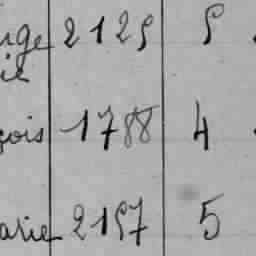 2125 5
ie
çois 1788 4
arie 2157 5